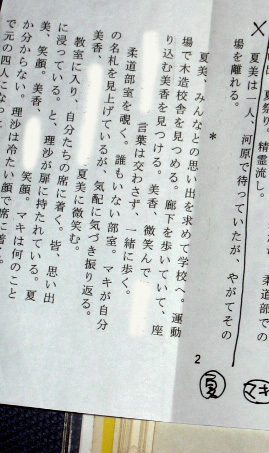 夏祭り。精霊流し。
柔道部での
夏美は一人、河原で待っていたが、やがてその
場を離れる。
*
夏美、みんなとの思い出を求めて学校へ。運動
場で木造校舎を見つめる。廊下を歩いていて、座
り込む美香を見つける。美香、微笑んで
言葉は交わさず、一緒に歩く。
柔道部室を覗く。誰もいない部室。マキが自分
の名札を見上げているが、気配に気づき振り返る。
美香、
夏美に微笑む。
教室に入り、自分たちの席に着く。皆、思い出
に浸っている。と、理沙が扉に持たれている。夏
美、笑顔。美香、
笑顔。マキは何のこと
か分からない。理沙は冷たい顔で席に着く。
で元の四人になっ
2
夏
マキ